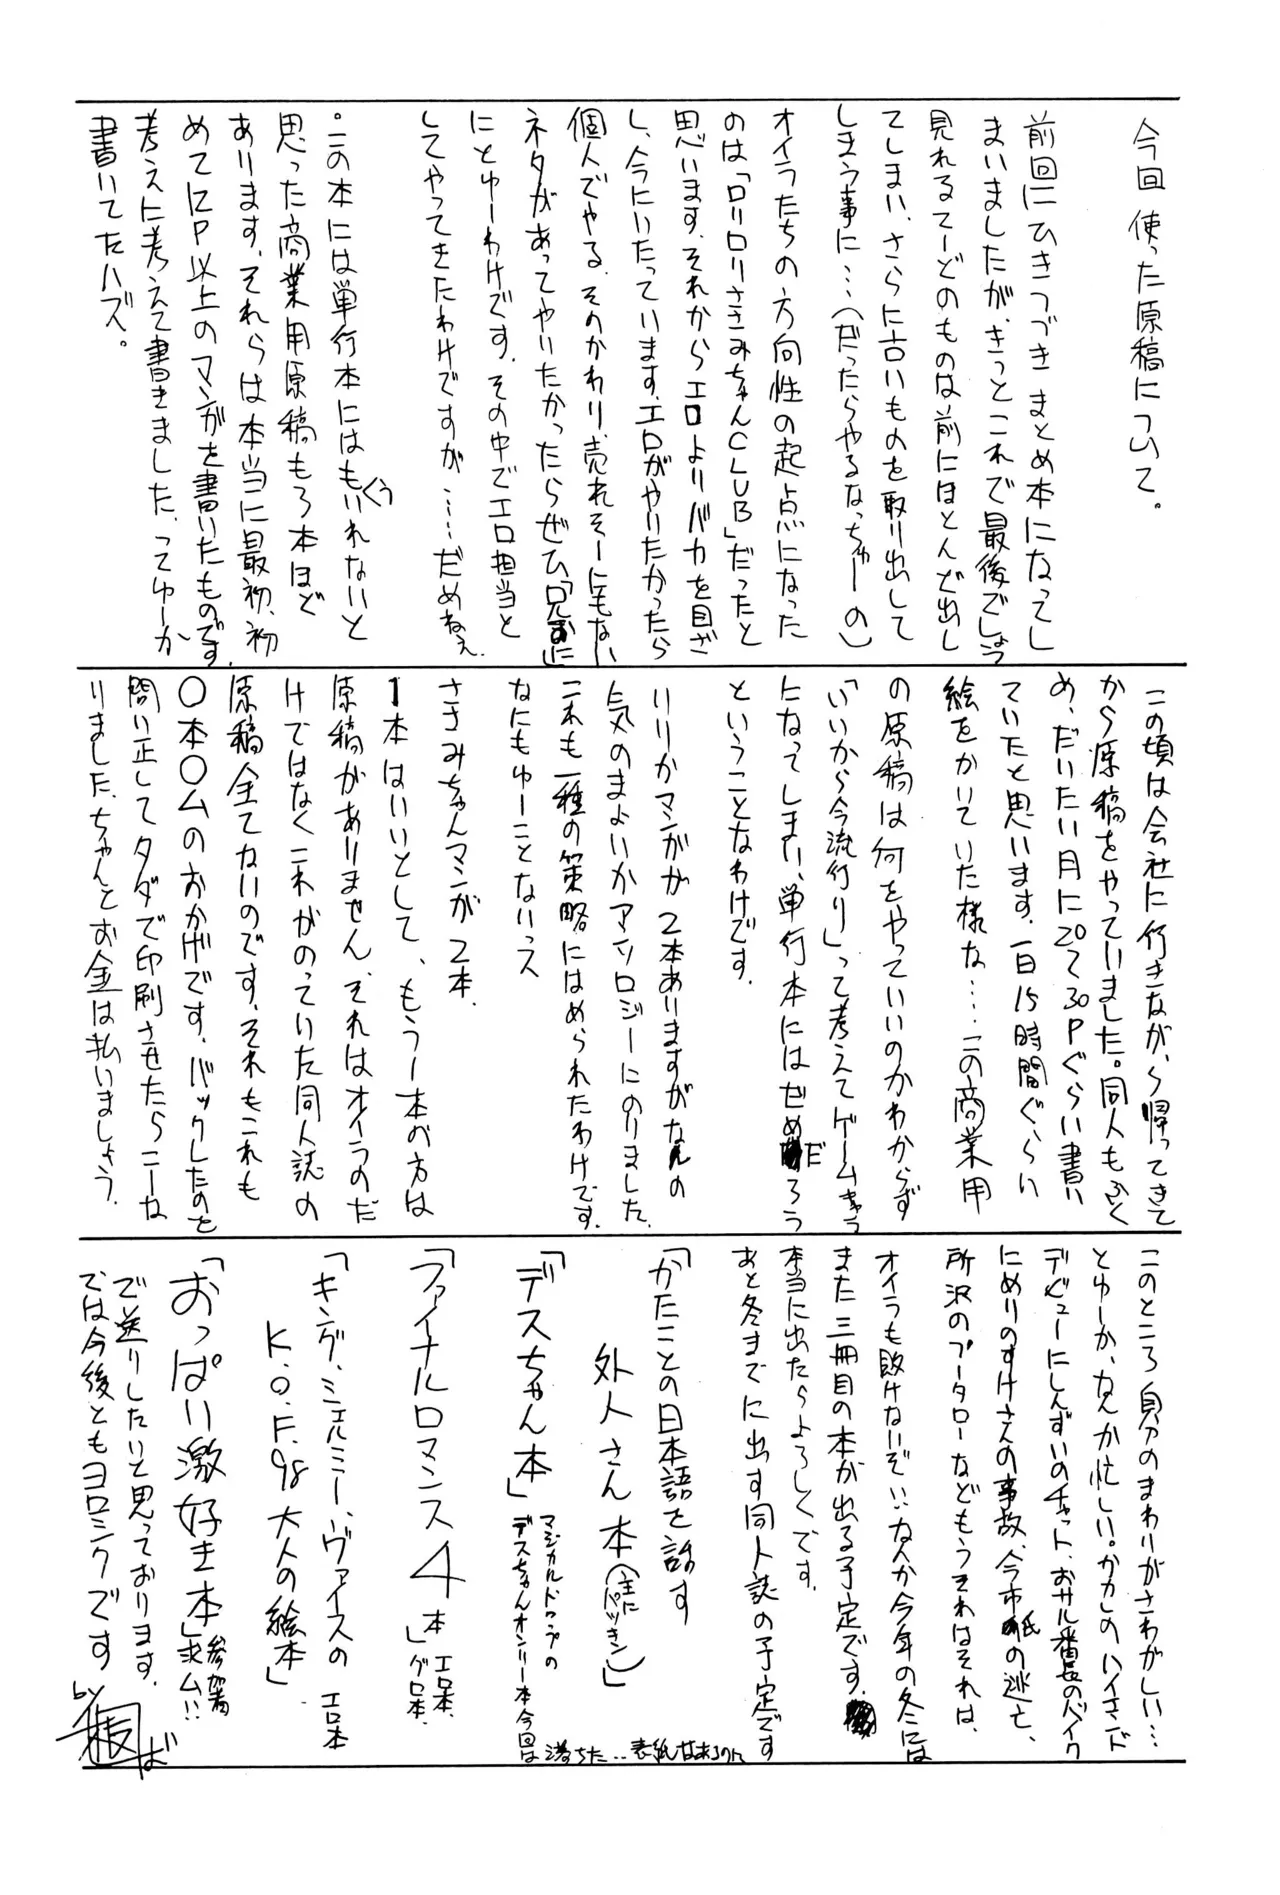 今回 使った原稿について。
前回にひきつづき まとめ本になってし
まいましたが、きっとこれで最後でしょう
見れるてーどのものは前にほとんど出し
てしまい、さらに古いものを取り出して
しまう事に…(だったらやるなっちゅーの)
オイラたちの方向性の起点になった
のは「ロリロリささみちゃんCLUB」だったと
思います、それからエロよりバカを目ざ
し、今にいたっています、エロがやりたかったら
個人でやる、そのかわり売れそーにもない
ネタがあってやりたかったらぜひ「兄あに」
にとゆーわけです、その中でエロ担当と
してやってきたわけですが……だめねぇ
。この本には単行本にはもういれないと
思った商業用原稿も3本ほど
あります、それらは本当に最初、初
めて12P以上のマンガを書いたものです、
考えに考えて書きました、ってゆーか
書いてたハズ。
この頃は会社に行きながら帰ってきて
から原稿をやっていました。同人もふく
め、だいたい月に20〜30Pぐらい書い
ていたと思います、一日15時間ぐらい
絵をかいていた様な……この商業用
の原稿は何をやっていいのかわからず
「いいから今流行り」って考えてゲームキャラ
になってしまい、単行本にはぜめだろう
ということなわけです。
りりかマンガが2本ありますがなんの
気のまよいかアンソロジーにのりました、
これも一種の策略にはめられたわけです、
なにもゆーことないっス
ささみちゃんマンガ2本、
1本はいいとして、もう一本の方は
原稿がありません、それはオイラのだ
けではなくこれがのっていた同人誌の
原稿全てないのです、それもこれも
〇本〇ムのおかげです、バックしたのと
問い正してタダで印刷させたらこーな
りました、ちゃんとお金は払いましょう、
このところ自分のまわりがさわがしい…
とゆーか、なんか忙しい。かかしのハイエンド
デビューにしんずいのチャット、おサル番長のバイク
にめりのすけさんの事故、今市 紙の逃亡、
所沢のプータローなどもうそれはそれは、
オイラも敗けないぞい…なんか今年の冬には
また三冊目の本が出る予定です、
本当に出たらよろしくです、
あと冬までに出す同人誌の予定です
「かたことの日本語を話す
外人さん本(主にパツキン)」
「デスちゃん本」マジカルドロップの
デスちゃんオンリー本今回は落ちた‥表紙はあるのに
「ファイナルロマンス4本」エロ本、
グロ本、
「キング、シェルミー、ヴァイスの エロ本
K.O.F.98 大人の絵本」
「おっぱい激好き本」参加者求ム!!
で送りしたいと思っております、
では今後ともヨロシクです
by
ば